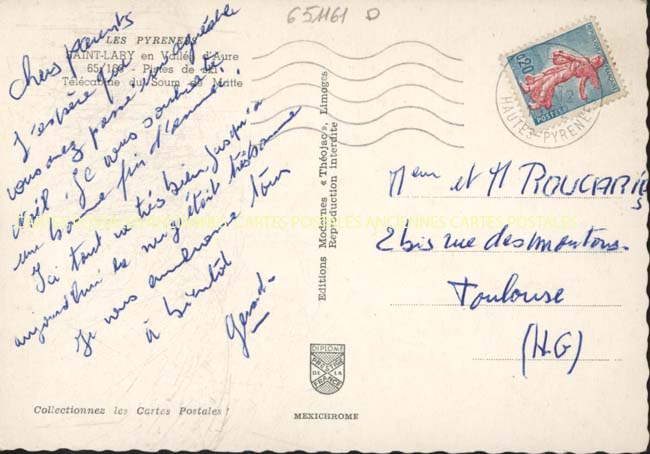 651161 D
LES PYRENEES
SAINT-LARY en Vallée d'Aure
65/160 - Pistes de ski
Télécabine du Soum de Matte
Chers parents
J'espère que
vous avez passé un agréable
Noël. Je vous souhaite
une bonne fin d'année.
Ici tout va très bien jusqu'à
aujourd'hui la neige était très bonne
Je vous embrasse tous
à bientôt
Gérard
Collectionnez les Cartes Postales !
Editions Modernes « Théojac », Limoges
Reproduction interdite
DIPLOME
PRESTIGE
DE LA
FRANCE
MEXICHROME
0,20
POSTES
HAUTES-PYRENEES
Meur et M ROUCARIES
2 bis rue des moutons
Toulouse
(H.G)
CARTES POSTALES ANCIENNES